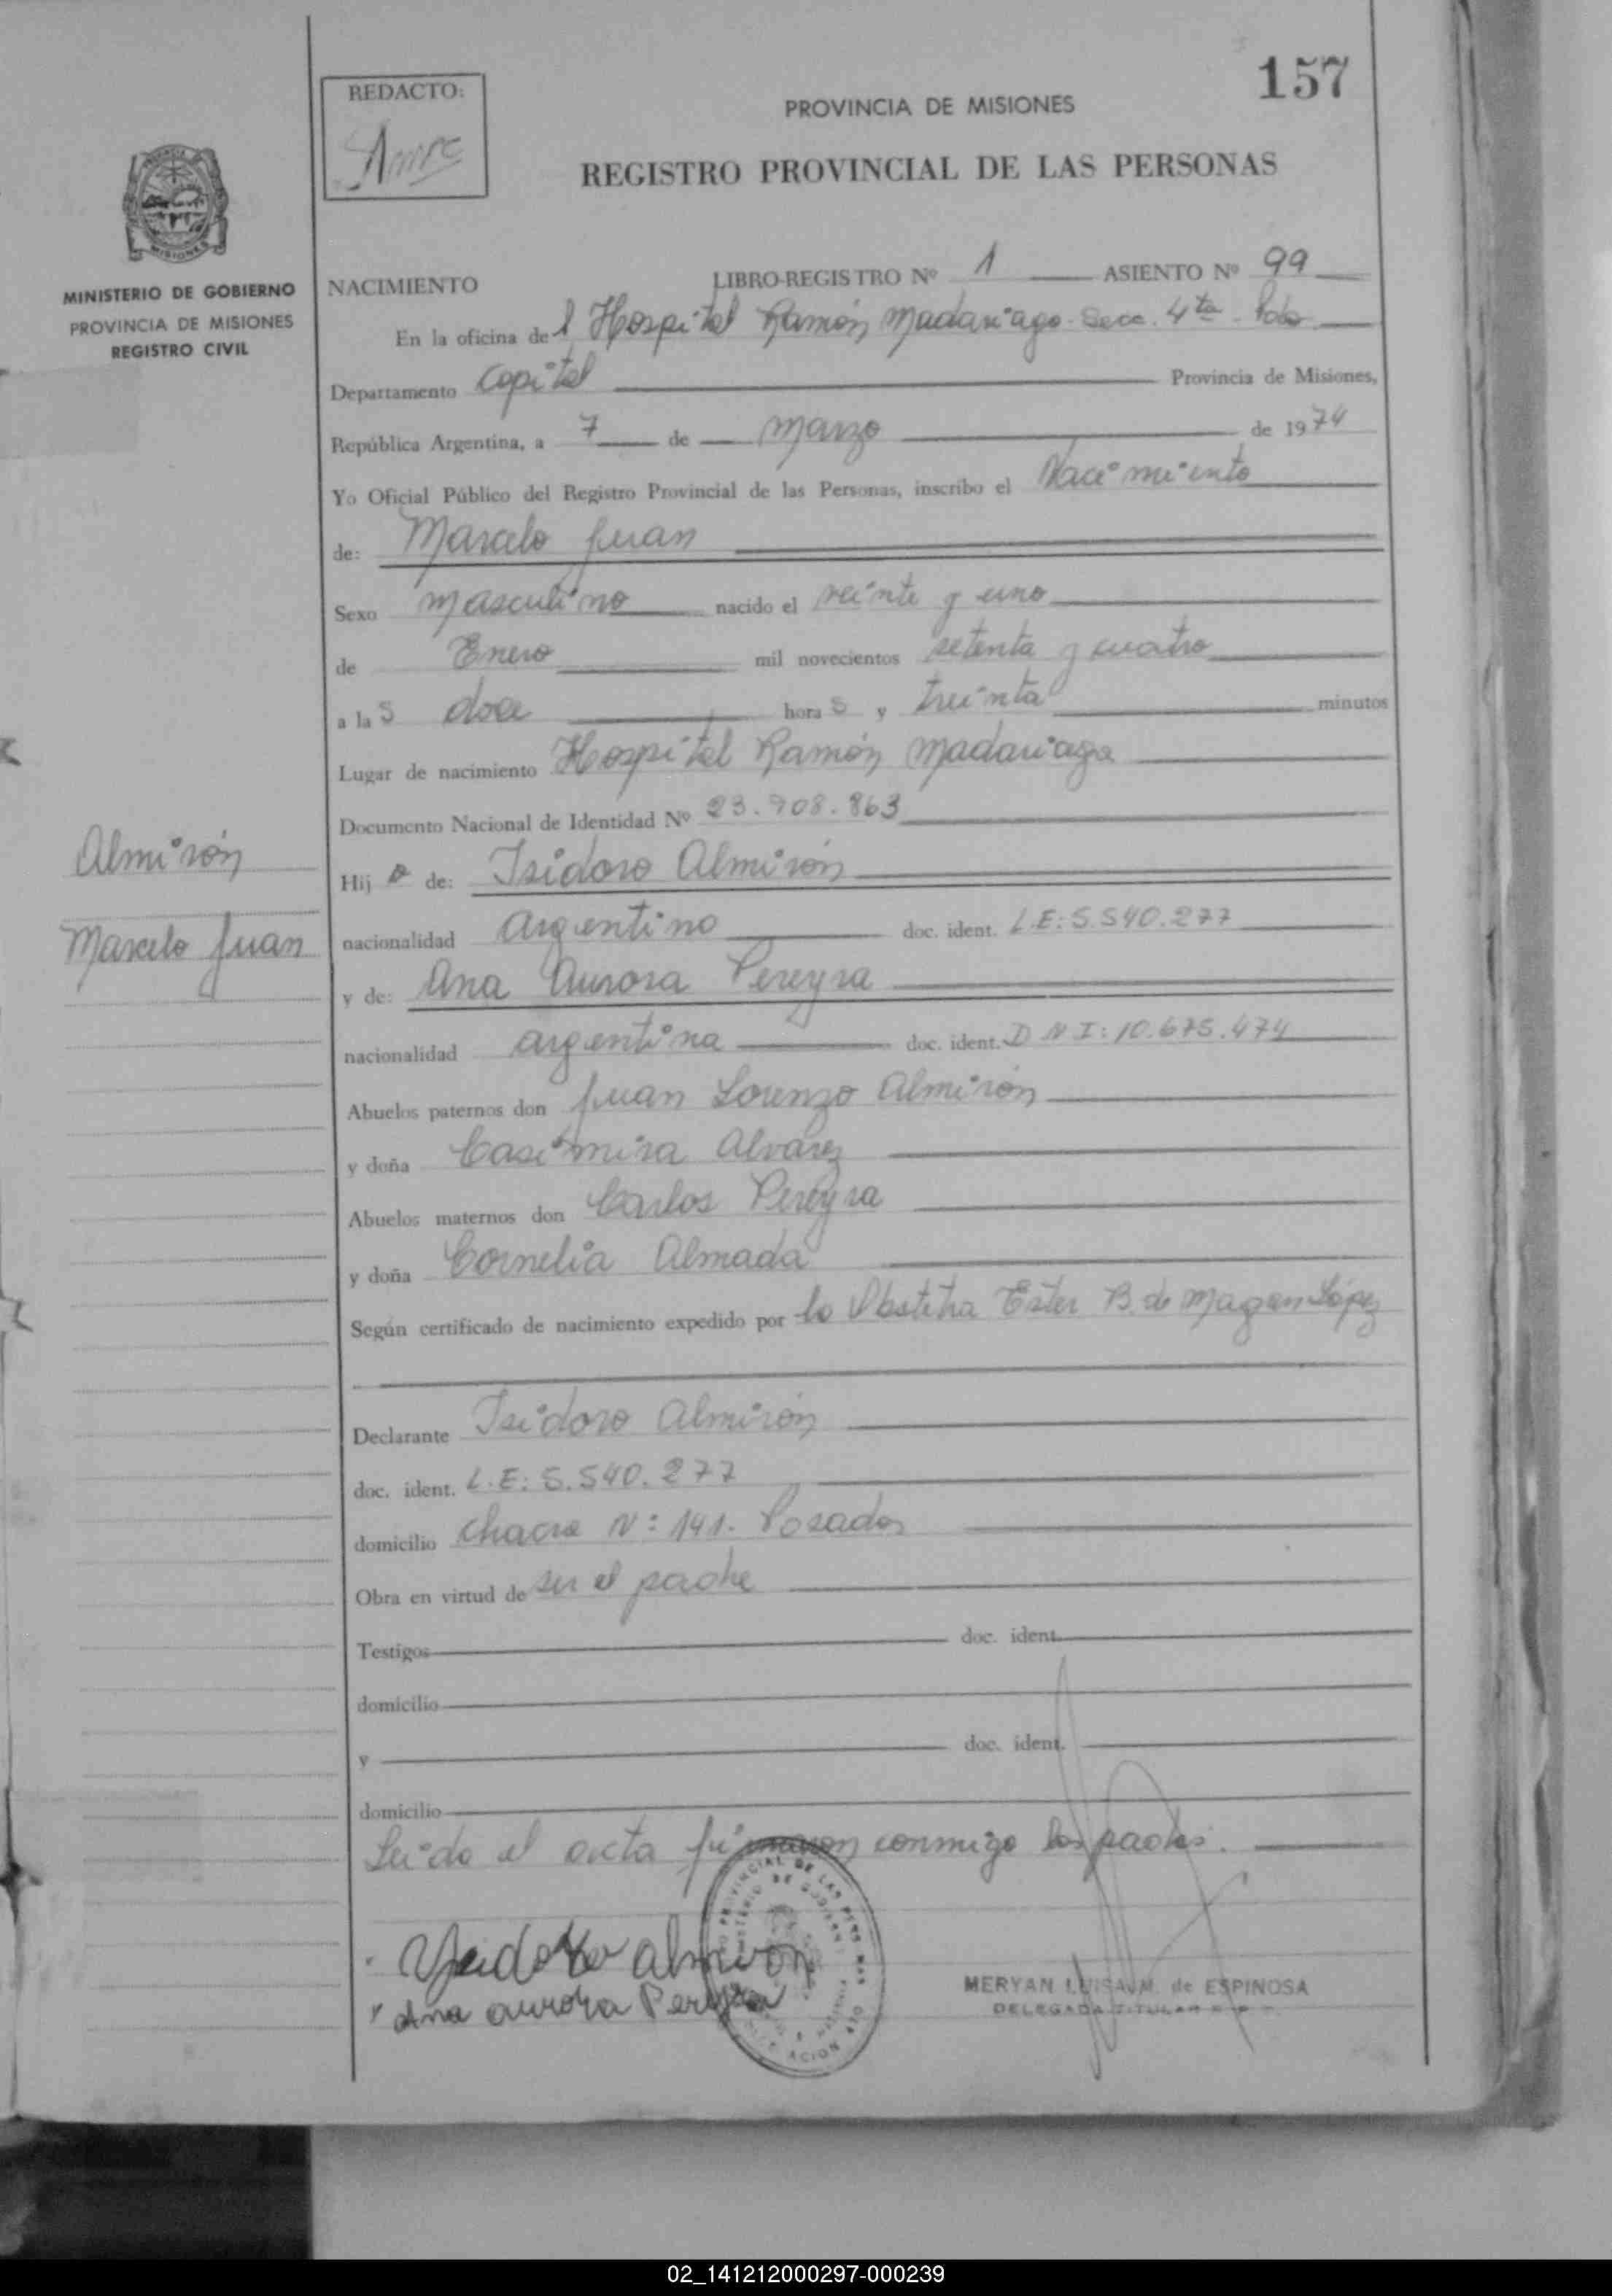 157
REDACTO:
PROVINCIA DE MISIONES
REGISTRO PROVINCIAL DE LAS PERSONAS
MINISTERIO DE GOBIERNO
PROVINCIA DE MISIONES
REGISTRO CIVIL
NACIMIENTO LIBRO-REGISTRO Nº 1 ASIENTO Nº 99
En la oficina del Hospital Ramón Madariaga - Secc. 4ta - Pdas
Departamento Capital Provincia de Misiones,
República Argentina, a 7 de Marzo de 1974
Yo Oficial Público del Registro Provincial de las Personas, inscribo el Nacimiento
de: Marcelo Juan
Sexo masculino nacido el veinte y uno
de Enero mil novecientos setenta y cuatro
a las doce horas y treinta minutos
Lugar de nacimiento Hospital Ramón Madariaga
Documento Nacional de Identidad Nº 23.908.863
Almirón
Marcelo Juan
Hijo de: Isidoro Almirón
nacionalidad argentino doc. ident. L.E: 5.540.277
y de: Ana Aurora Pereyra
nacionalidad argentina doc. ident. D N I: 10.675.474
Abuelos paternos don Juan Lorenzo Almirón
y doña Casimira Alvarez
Abuelos maternos don Carlos Pereyra
y doña Cornelia Almada
Según certificado de nacimiento expedido por la Obstetra Ester B. de Magan López
Declarante Isidoro Almirón
doc. ident. L.E: 5.540.277
domicilio chacra Nº: 141. Posadas
Obra en virtud de ser el padre
Testigos doc. ident.
domicilio
y doc. ident.
domicilio
Leido el acta firmaron conmigo los padres.
Ysidoro almiron
Ana aurora Pereyra
MERYAN LUISA M. de ESPINOSA
DELEGADA TITULAR
02_141212000297-000239